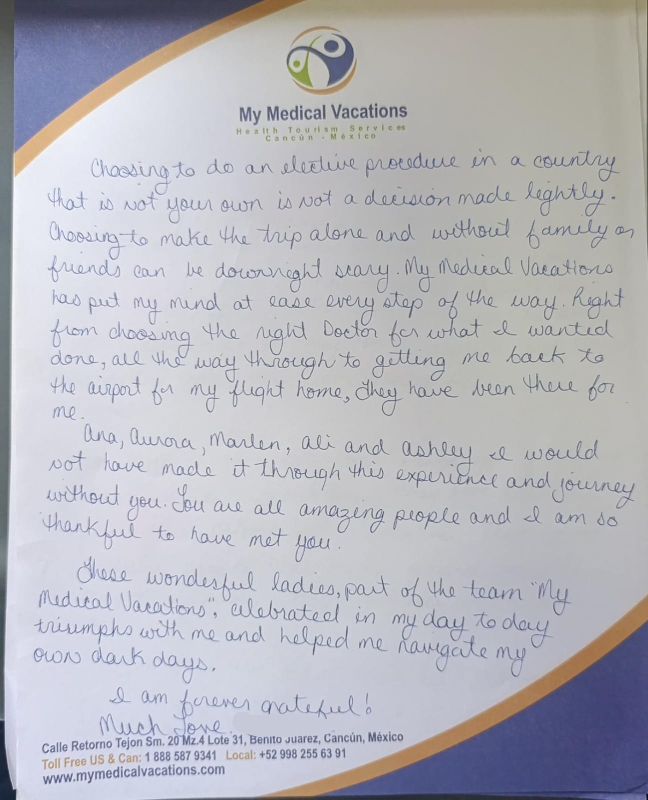 My Medical Vacations
Health Tourism Services
Cancún - México
Choosing to do an elective procedure in a country
that is not your own is not a decision made lightly.
Choosing to make the trip alone and without family or
friends can be downright scary. My Medical Vacations
has put my mind at ease every step of the way. Right
from choosing the right Doctor for what I wanted
done, all the way through to getting me back to
the airport for my flight home, they have been there for
me.
Ana, Aurora, Marlen, Ali and Ashley I would
not have made it through this experience and journey
without you. You are all amazing people and I am so
thankful to have met you.
These wonderful ladies, part of the team "My
Medical Vacations", celebrated in my day to day
triumphs with me and helped me navigate my
own dark days.
I am forever grateful!
Much Love
Calle Retorno Tejon Sm. 20 Mz.4 Lote 31, Benito Juarez, Cancún, México
Toll Free US & Can: 1 888 587 9341 Local: +52 998 255 63 91
www.mymedicalvacations.com